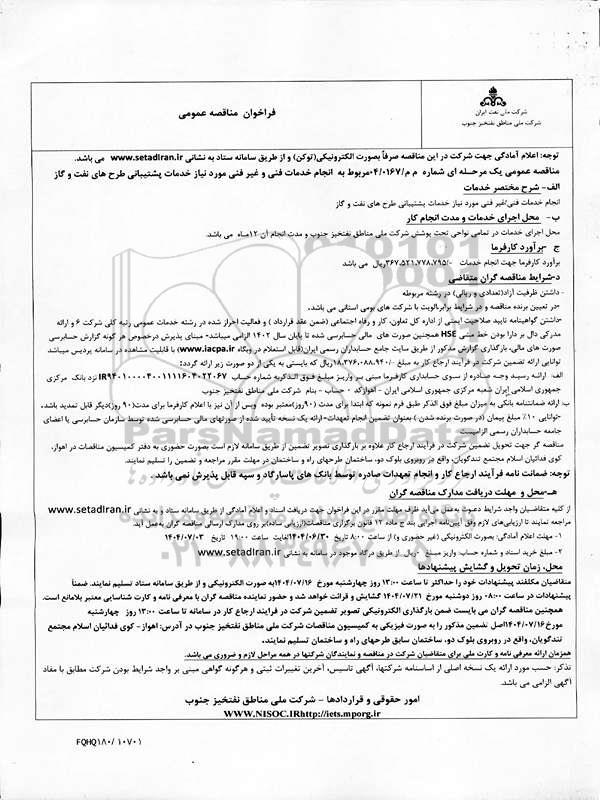 شرکت ملی نفت ایران
شرکت ملی مناطق نفتخیز جنوب
فراخوان مناقصه عمومی
توجه: اعلام آمادگی جهت شرکت در این مناقصه صرفاً بصورت الکترونیکی(توکن) و از طریق سامانه ستاد به نشانی www.setadIran.ir می باشد.
مناقصه عمومی یک مرحله ای شماره م م/۰۴/۰۱۶۷ مربوط به انجام خدمات فنی و غیر فنی مورد نیاز خدمات پشتیبانی طرح های نفت و گاز
الف- شرح مختصر خدمات
انجام خدمات فنی/غیر فنی مورد نیاز خدمات پشتیبانی طرح های نفت و گاز
ب- محل اجرای خدمات و مدت انجام کار
محل اجرای خدمات در تمامی نواحی تحت پوشش شرکت ملی مناطق نفتخیز جنوب و مدت انجام آن ۱۲ماه می باشد.
ج -برآورد کارفرما
برآورد کارفرما جهت انجام خدمات -/۳۶۷،۵۲۱،۷۷۸،۷۹۵ریال می باشد
د-شرایط مناقصه گران متقاضی
- داشتن ظرفیت آزاد(تعدادی و ریالی) در رشته مربوطه
-در تعیین برنده مناقصه و در شرایط برابر،الویت با شرکت های بومی استانی می باشد.
-داشتن گواهینامه تایید صلاحیت ایمنی از اداره کل تعاون، کار و رفاه اجتماعی (ضمن عقد قرارداد ) و فعالیت احراز شده در رشته خدمات عمومی رتبه کلی شرکت ۶ و ارائه
مدرکی دال بر دارا بودن خط مشی HSE همچنین صورت های مالی حسابرسی شده تا پایان سال ۱۴۰۲ الزامی میباشد- مبنای پذیرش درخصوص هر گونه گزارش حسابرسی
صورت های مالی، بارگذاری گزارش مذکور از طریق سایت جامع حسابداران رسمی ایران(قابل استعلام در وبگاه www.iacpa.ir) با قابلیت مشاهده در سامانه پردیس میباشد
توانایی ارائه تضمین شرکت در فرآیند ارجاع کار به مبلغ -/۱۸،۳۷۶،۰۸۸،۹۴۰ریال که بایستی به یکی از دو صورت زیر ارائه گردد:
الف- ارائه رسید وجه صادره از سوی حسابداری کارفرما مبنی بر واریز مبلغ فوق الذکربه شماره حساب IR۹۴۰۱۰۰۰۰۴۰۰۱۱۱۱۶۰۴۰۲۲۰۶۷ نزد بانک مرکزی
جمهوری اسلامی ایران شعبه مرکزی جمهوری اسلامی ایران - اهوازکد - حساب - بنام شرکت ملی مناطق نفتخیز جنوب
ب: ارائه ضمانتنامه بانکی به میزان مبلغ فوق الذکر طبق فرم نمونه که ابتدا برای مدت (۹۰روز)معتبر بوده وپس از آن نیز با اعلام کارفرما برای مدت(۹۰ روز)دیگر قابل تمدید باشد.
-توانایی ۱۰٪ مبلغ پیمان (در صورت برنده شدن ) بعنوان تضمین انجام تعهدات-ارائه یک نسخه تأیید شده از صورتهای مالی حسابرسی شده توسط سازمان حسابرسی یا اعضای
جامعه حسابداران رسمی الزامیست
مناقصه گر جهت تحویل تضمین شرکت در فرآیند ارجاع کار علاوه بر بارگذاری تصویر تضمین از طریق سامانه لازم است بصورت حضوری به دفتر کمیسیون مناقصات در اهواز،
کوی فدائیان اسلام مجتمع تندگویان، واقع در روبروی بلوک دو، ساختمان طرحهای راه و ساختمان در مهلت مقرر مراجعه و تضمین را تسلیم نمایند.
توجه: ضمانت نامه فرآیند ارجاع کار و انجام تعهدات صادره توسط بانک های پاسارگاد و سپه قابل پذیرش نمی باشد .
هـ-محل و مهلت دریافت مدارک مناقصه گران
از کلیه متقاضیان واجد شرایط دعوت به عمل می آید ظرف مهلت مقرر در این فراخوان جهت دریافت اسناد و اعلام آمادگی از طریق سامانه ستاد و به نشانی www.setadIran.ir
مراجعه نمایند تا ارزیابی‌های لازم وفق آیین‌نامه اجرایی بند ج ماده ۱۲ قانون برگزاری مناقصات(ارزیابی ساده)بر روی مدارک ارسالی مناقصه گران به‌عمل آید.
۱- مهلت اعلام آمادگی: بصورت الکترونیکی (غیر حضوری و) از ساعت ۸:۰۰ تاریخ ۱۴۰۴/۰۶/۳۰لغایت ساعت ۱۹:۰۰ تاریخ ۱۴۰۴/۰۷/۰۳
۲- مبلغ خرید اسناد و شماره حساب واریز مبلغ ۰ ریال، از طریق درگاه موجود در سامانه به نشانی www.setadIran.ir
محل، زمان تحویل و گشایش پیشنهادها
متقاضیان مکلفند پیشنهادات خود را حداکثر تا ساعت ۱۳:۰۰ روز چهارشنبه مورخ ۱۴۰۴/۰۷/۱۶به صورت الکترونیکی و از طریق سامانه ستاد تسلیم نمایند. ضمناً
پیشنهادات در ساعت ۰۸:۰۰ روز دوشنبه مورخ ۱۴۰۴/۰۷/۲۱ گشایش و قرائت خواهد شد و حضور نماینده مناقصه گران با معرفی نامه و کارت شناسایی معتبر بلامانع است.
همچنین مناقصه گران می بایست ضمن بارگذاری الکترونیکی تصویر تضمین شرکت در فرایند ارجاع کار در سامانه تا ساعت ۱۳:۰۰ روز چهارشنبه
مورخ ۱۴۰۴/۰۷/۱۶اصل تضمین مذکور را به صورت فیزیکی به کمیسیون مناقصات شرکت ملی مناطق نفتخیز جنوب در آدرس: اهواز - کوی فدائیان اسلام مجتمع
تندگویان، واقع در روبروی بلوک دو، ساختمان سابق طرحهای راه و ساختمان تسلیم نمایند.
همزمان ارائه معرفی نامه و کارت ملی برای متقاضیان شرکت در مناقصه و نمایندگان شرکتها در همه مراحل لازم و ضروری می باشد.
تذکر: حسب مورد ارائه یک نسخه اصلی از اساسنامه شرکتها، آگهی تاسیس، آخرین تغییرات ثبتی و هرگونه گواهی مبنی بر واجد شرایط بودن شرکت مطابق با مفاد
آگهی الزامی می باشد.
امور حقوقی و قراردادها - شرکت ملی مناطق نفتخیز جنوب
WWW.NISOC.IRhttp://iets.mporg.ir
FQHQ۱۸۰/ ۱۰۷۰۱